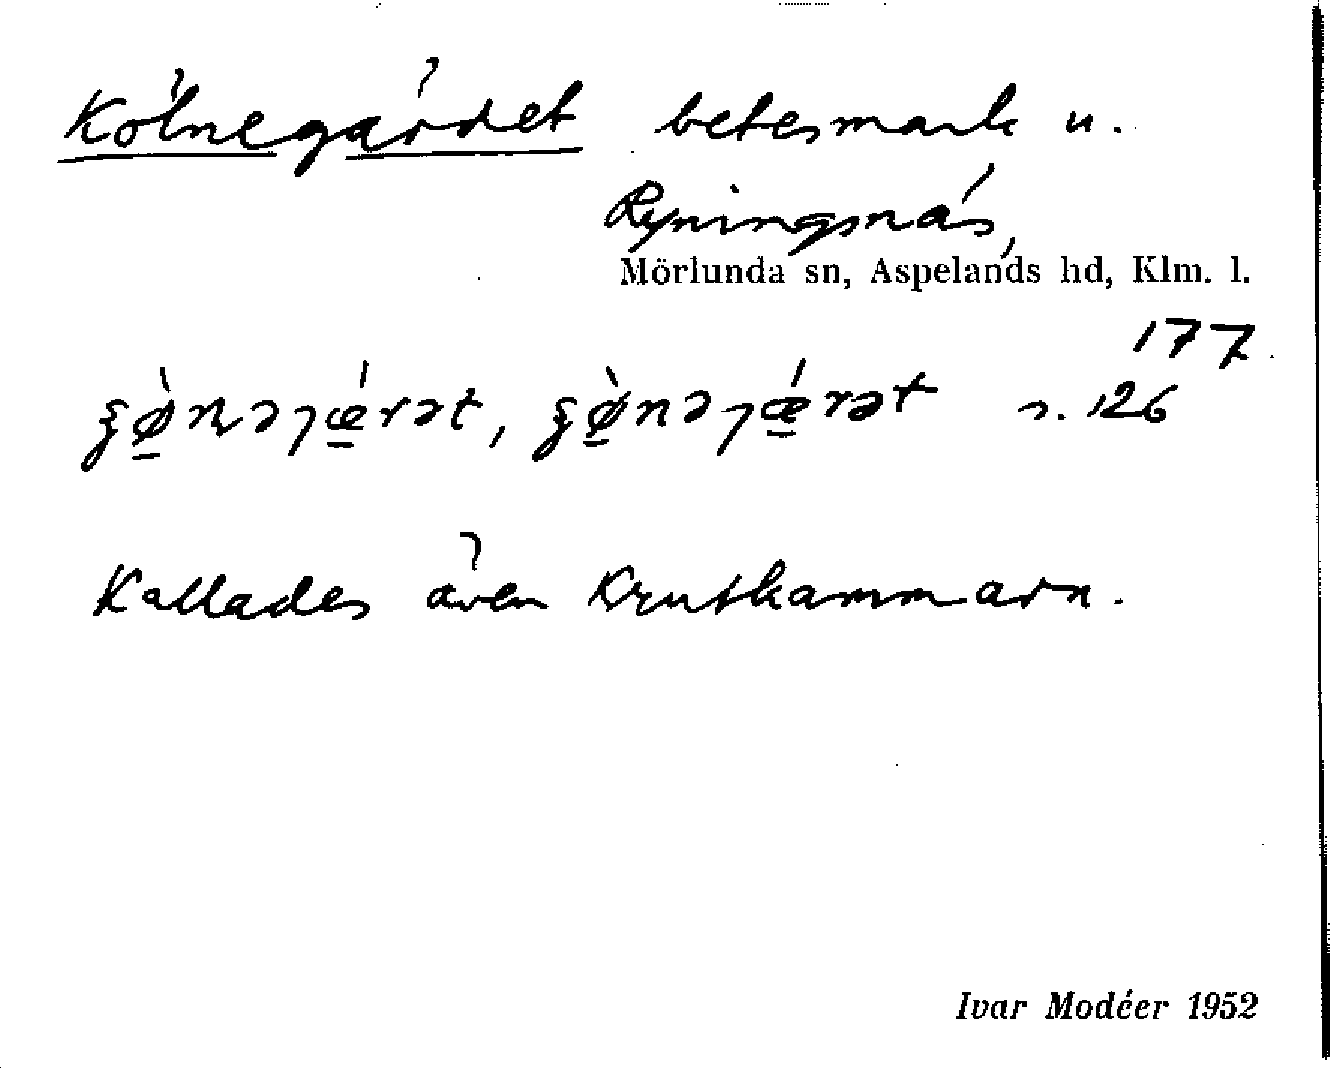 Kölnegärdet betesmark u.
Ryningsnäs,
Mörlunda sn, Aspelands hd, Klm. l.
177
s. 126
Kallades även Krutkammarn.
Ivar Modéer 1952